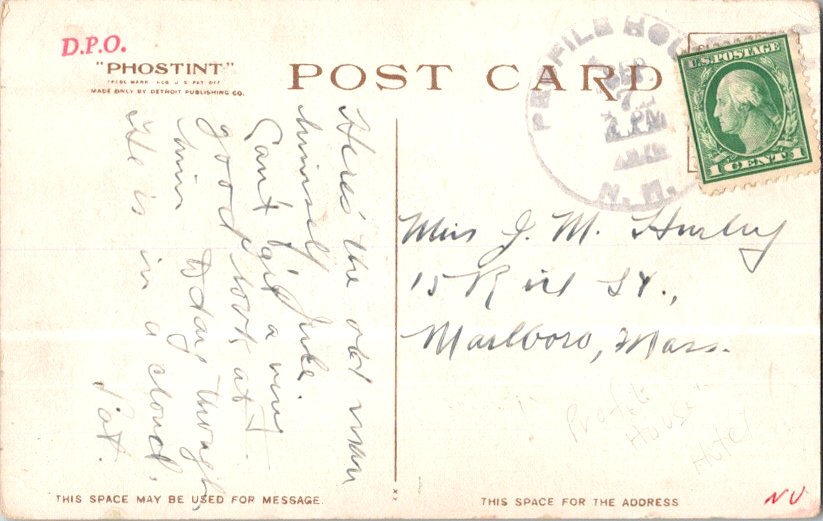 D.P.O.
"PHOSTINT"
TRADE MARK REG U.S. PAT. OFF.
MADE ONLY BY DETROIT PUBLISHING CO.
POST CARD
PROFILE HOUSE
SEP
7
PM
N.H.
U.S. POSTAGE
1 CENT 1
Here's the old man
himself Jule.
Can't get a very
good look at
him today though,
He is in a cloud.
Pat.
Miss J. M. Hurley
15 St.,
Marlboro, Mass.
Profile
House
Hotel
THIS SPACE MAY BE USED FOR MESSAGE.
THIS SPACE FOR THE ADDRESS
NU